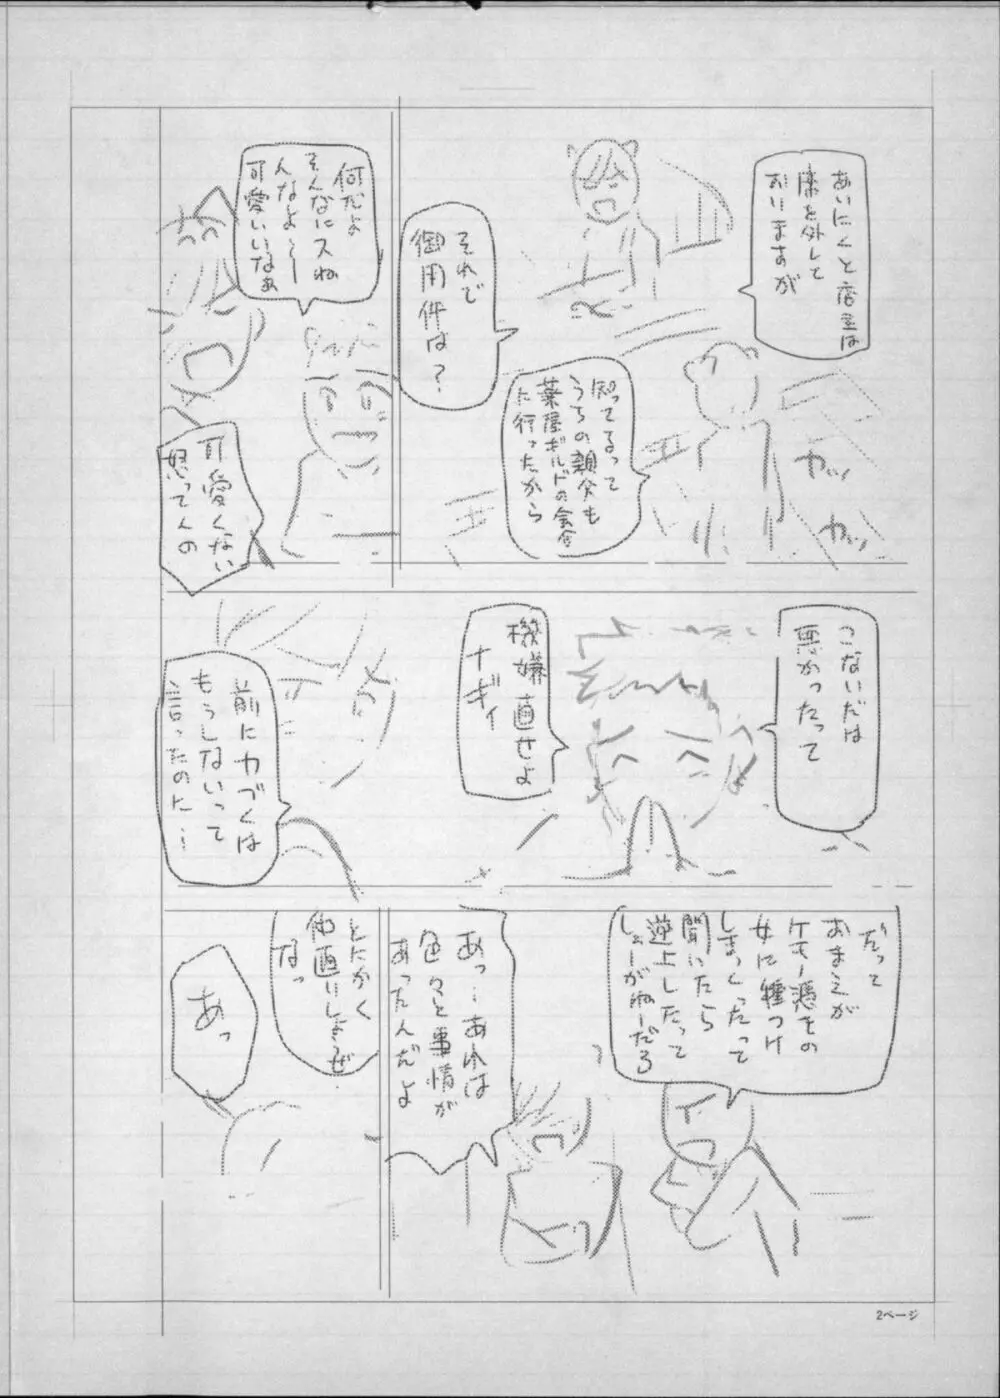 あいにくと店主は
席を外して
おりますが
それで
御用件は？
知ってるって
うちの親父も
薬屋ギルドの会合
に行ったから
カッ
カッ
何だよ
そんなにスね
んなよ〜
可愛いいなあ
可愛くない
怒ってんの
こないだは
悪かったって
機嫌直せよ
ナギィ
前に力づくは
もうしないって
言ったのに…
だって
おまえが
ケモノ憑きの
女に種つけ
しまくったって
聞いたら
逆上したって
しょーがねーだろ
あっ…あれは
色々と事情が
あったんだよ
とにかく
仲直りしようぜ
なっ
あっ
2ページ